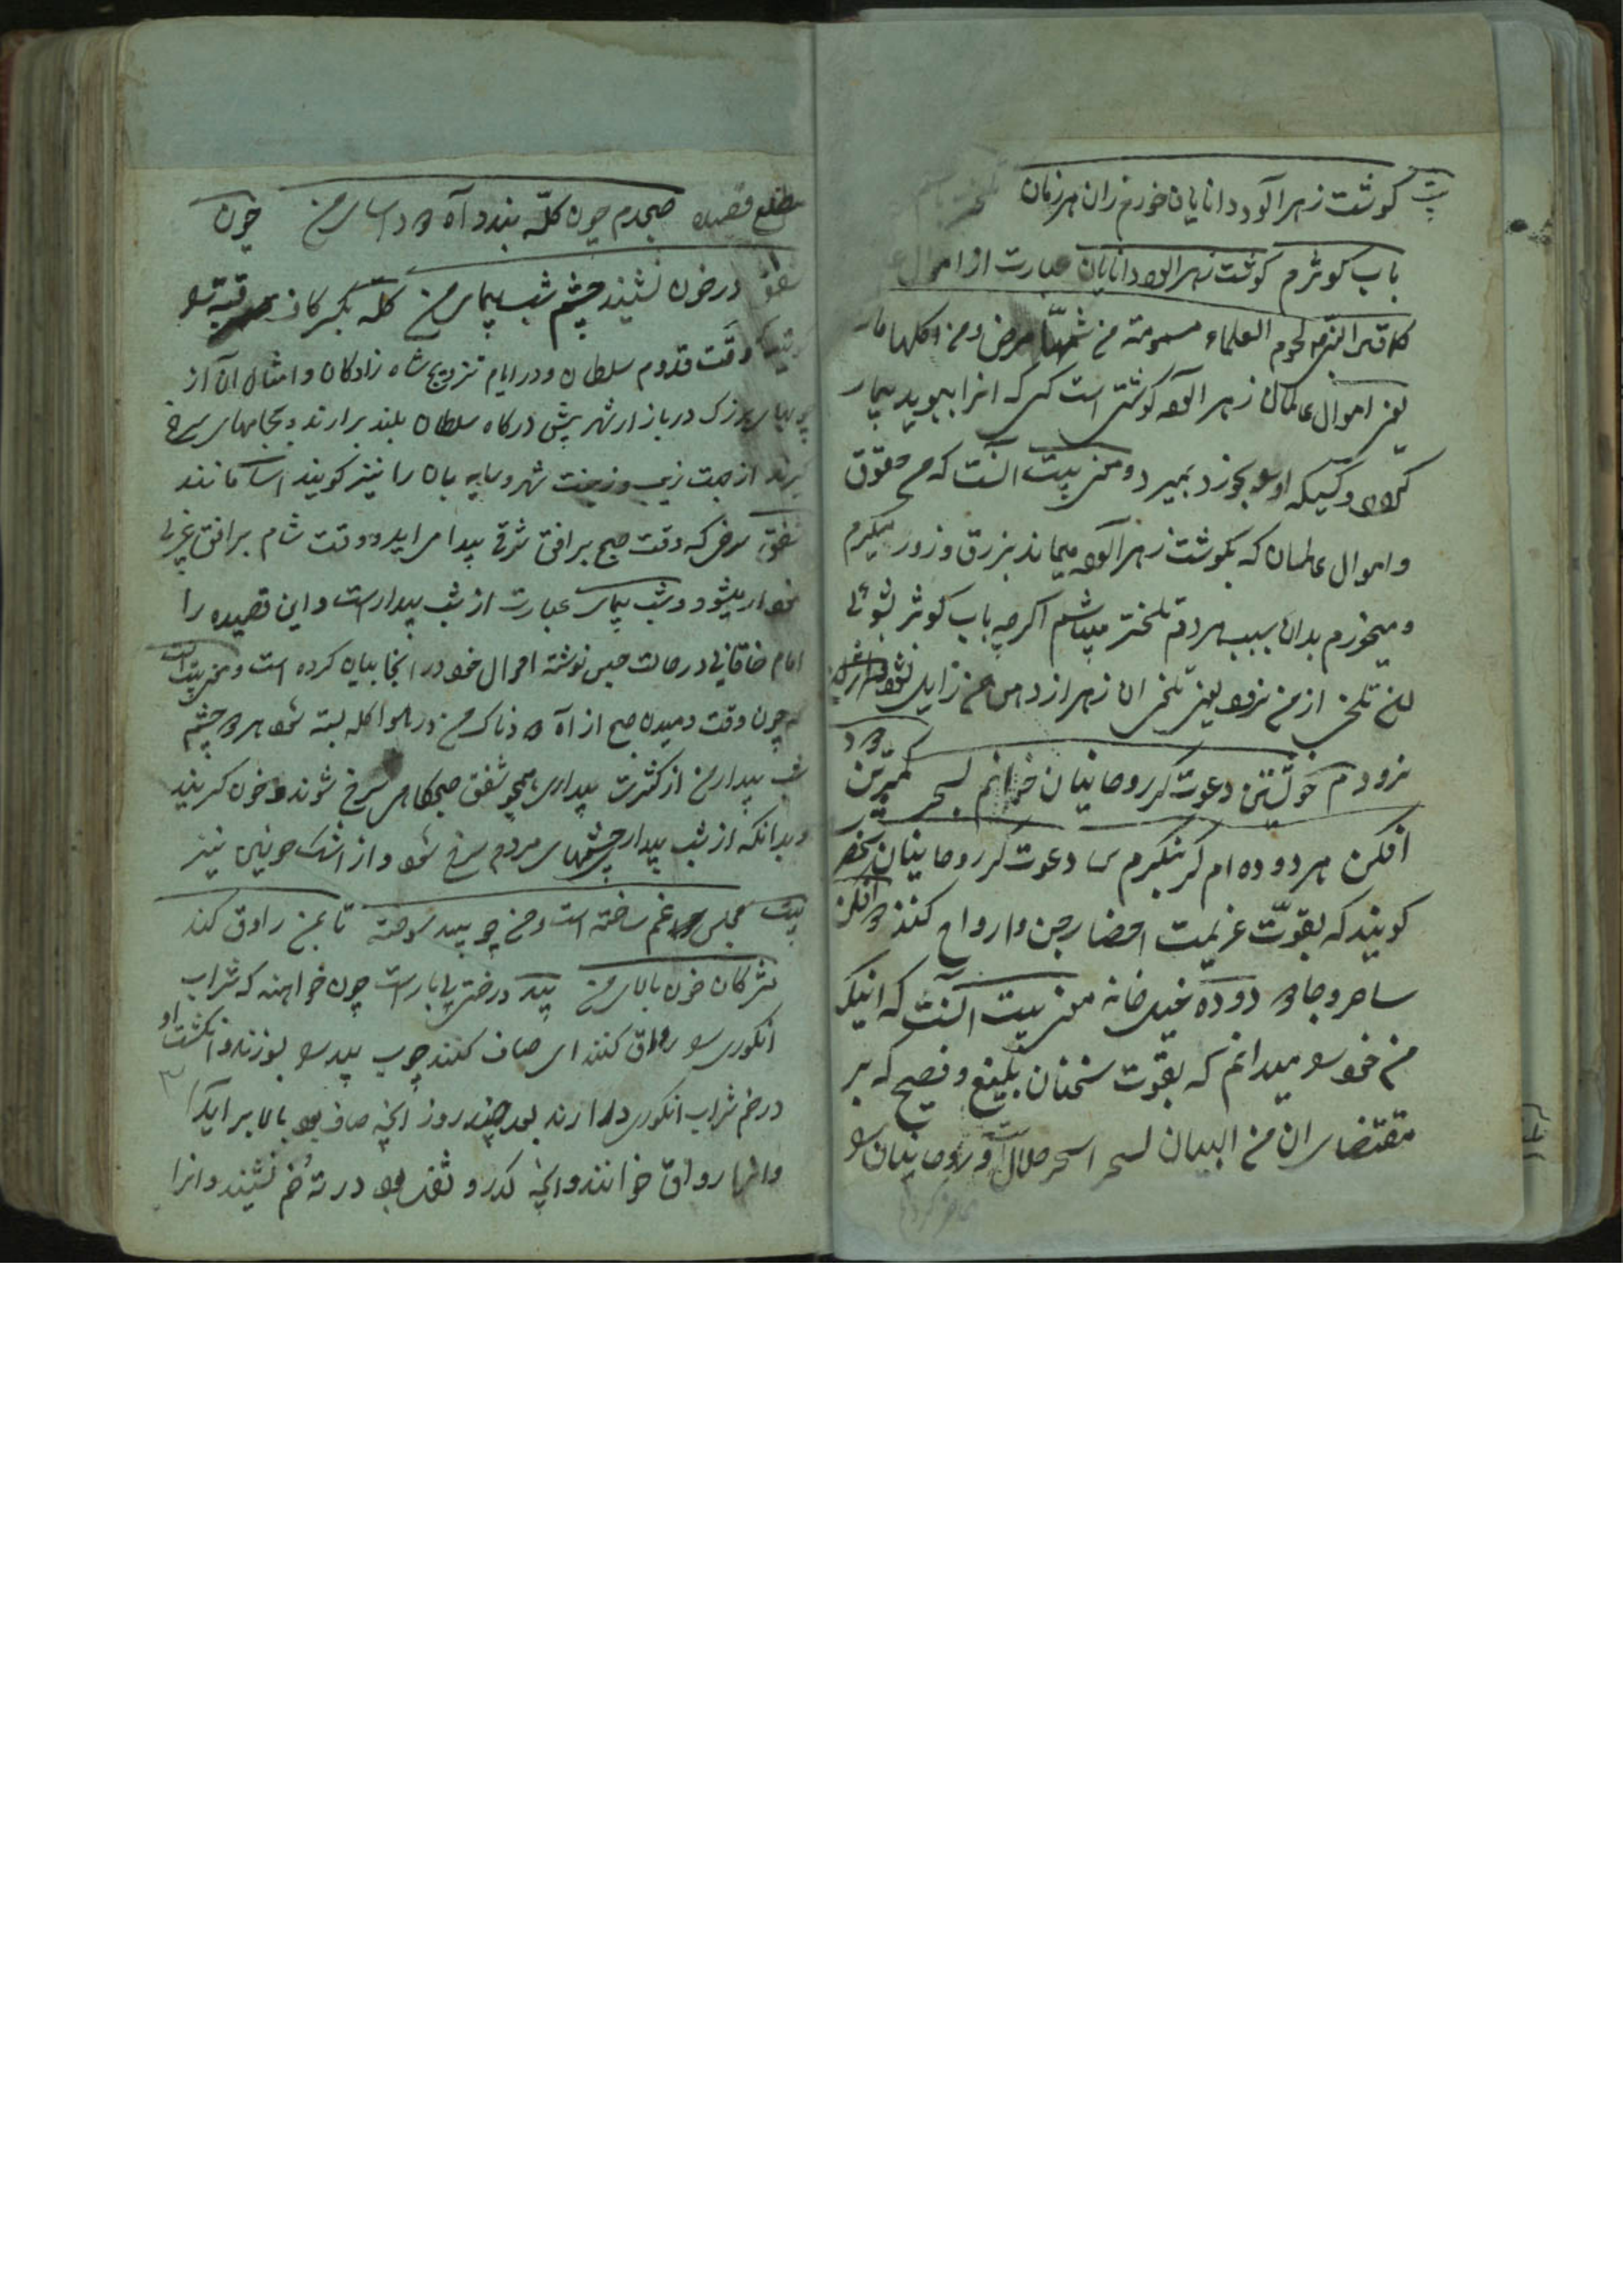 بیت گوشت زهرآلود دانایان خورم زان هر زمان
باب کوثرم گوشت زهرالود دانایان عبارت از اموال
کما قال النبی لحوم العلماء مسمومة من شمها مرض و من اکلها مات
یعنی اموال عالمان زهرالود گوشتی است کسی که انرا ببوید بیمار
گردد و کسیکه او را بخورد بمیرد و معنی بیت آنست که من حقوق
و اموال عالمان که بگوشت زهرآلود میماند بزرق و زور میگیرم
و میخورم بدان سبب هر دم تلختر میباشم اگرچه باب کوثر بشوئی
تلخی از من نرود یعنی تلخی ان زهر از دهن من زایل نشود
خویشتن دعوتگر روحانیان خوانم بسحر کمترین
افکن هر دوده ام گر بنگرم دعوتگر روحانیان
گویند که بقوّت عزیمت احضار جن و ارواح کنند
ساحر و جادو دوده خیل خانه معنی بیت آنست که اینک
من خود را میدانم که بقوت سخنان بلیغ و فصیح که بر
مقتضای ان من البیان لسحرا سحر حلال و روحانیان را
مطلع قصیده صبحدم چون کلّه بندد آه دود اسای من چون
شفق در خون نشیند چشم شب پیمای من کله بکسر کاف قبّه را
وقت قدوم سلطان و در ایام تزویج شاه زادگان و امثال آن از
بزرگ در بازار شهر پیش درگاه سلطان بلند برارند و بجامهای سرخ
از جهت زیب و زینت شهر و سایه بان را نیز گویند اسا مانند
شفق سرخی که وقت صبح بر افق شرقی پیدا می اید و وقت شام بر افق غربی
نمودار میشود و شب پیمای عبارت از شب بیدارست و این قصیده را
امام خاقانی در حالت حبس نوشته احوال خود در انجا بیان کرده است و معنی بیت انست
که چون وقت دمیدن صبح از آه دودناک من در هوا کله بسته شود هر دو چشم
شب بیدار من از کثرت بیداری همچو شفق صبحگاهی سرخ شوند و خون گریند
و بدانکه از شب بیداری چشمهای مردم سرخ شود و از اشک خونین نیز
بیت مجلس غم ساخته است و من چو بید سوخته تا بمن راوق کند
مژگان خون پالای من بید درختی بی بارست چون خواهند که شراب
انگوری را رواق کنند ای صاف کنند چوب بید را بسوزند و انگشت او
در خم شراب انگوری دارند بعد چند روز آنچه صاف بود بالا برآید
و انرا رواق خوانند و آنچه کدر و ثفل بود در ته خم نشیند و انرا